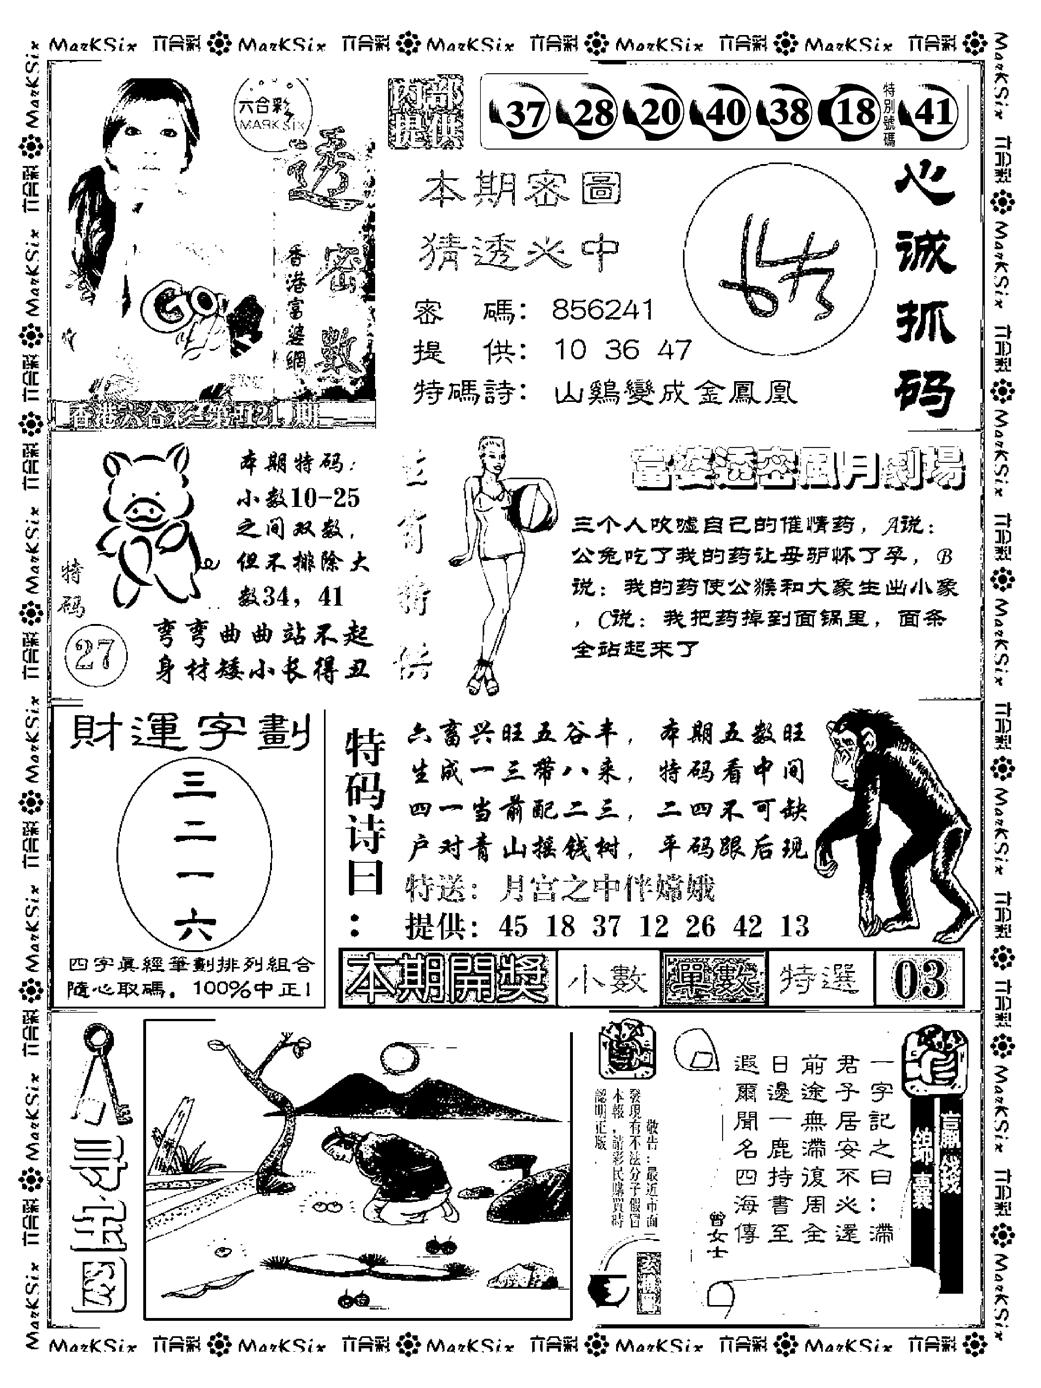 MarKSix 六合彩 MarKSix 六合彩 MarKSix 六合彩 MarKSix 六合彩 MarKSix 六合彩
六合彩
MARKSIX
透密數
香港富婆網
香港六合彩第121期
内部提供
37 28 20 40 38 18 特別號碼 41
本期密圖
猜透必中
密 碼：856241
提 供：10 36 47
特碼詩：山鷄變成金鳳凰
心诚抓码
本期特码：
小数10-25
之间双数，
但不排除大
数34，41
特码
27
弯弯曲曲站不起
身材矮小长得丑
生肖特供
富婆透密風月劇場
三个人吹嘘自己的催情药，A说：
公兔吃了我的药让母驴怀了孕，B
说：我的药使公猴和大象生出小象
，C说：我把药掉到面锅里，面条
全站起来了
財運字劃
三
二
一
六
四字真經筆劃排列組合
隨心取碼，100%中正！
特码诗曰：
六畜兴旺五谷丰，本期五数旺
生成一三带八来，特码看中间
四一当前配二三，二四不可缺
户对青山摇钱树，平码跟后现
特送：月宫之中伴嫦娥
提供：45 18 37 12 26 42 13
本期開獎 小數 單數 特選 03
敬告：最近市面
發現有不法分子假冒
本報，請彩民購買時
認明正版
贏錢
錦囊
一字記之曰：滯
君子居安不必遷
前途無滯復周全
日邊一鹿持書至
遐爾聞名四海傳
曾女士
MarKSix 六合彩 MarKSix 六合彩 MarKSix 六合彩 MarKSix 六合彩 MarKSix 六合彩